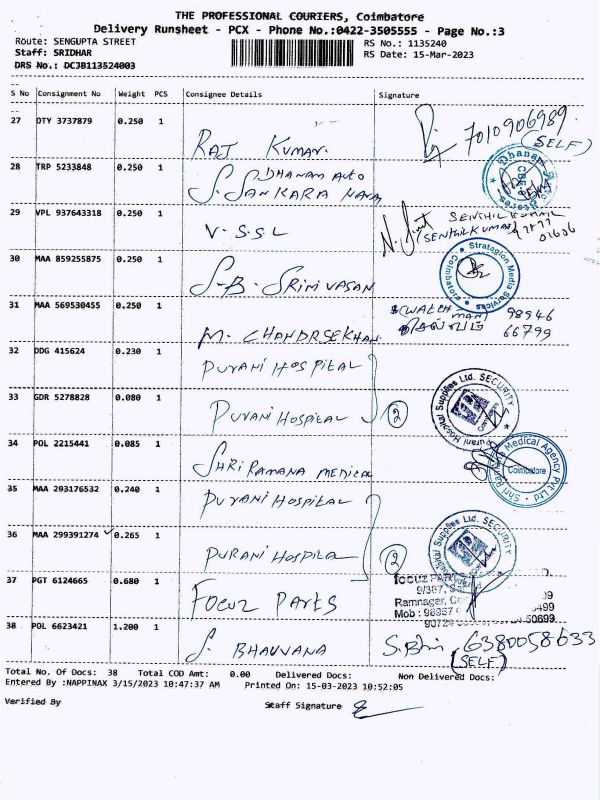 THE PROFESSIONAL COURIERS, Coimbatore
Delivery Runsheet - PCX - Phone No.:0422-3505555 - Page No.:3
Route: SENGUPTA STREET RS No.: 1135240
Staff: SRIDHAR RS Date: 15-Mar-2023
DRS No.: DCJB113524003
S No Consignment No Weight PCS Consignee Details Signature
27 OTY 3737879 0.250 1 RAJ KUMAR. 7010906989 (SELF)
28 TRP 5233848 0.250 1 DHANAM AUTO
S. SANKARA NARA
29 VPL 937643318 0.250 1 V.S.S.L SENTHIL KUMAR
(SENTHIL KUMAR) 97877
01606
30 MAA 859255875 0.250 1 S-B. SRINIVASAN Strategion Media Services Coimbatore
31 MAA 569530455 0.250 1 M. CHANDRSEKHAN (WATCH MAN) 98946
செல்வம் 66799
32 DDG 415624 0.230 1 PURANI HOSPITAL
33 GDR 5278828 0.080 1 PURANI HOSPITAL 2 Purani Hospital Supplies Ltd. SECURITY
34 POL 2215441 0.085 1 SHRI RAMANA MEDICAL Medical Agency Pvt Ltd Coimbatore
35 MAA 293176532 0.240 1 PURANI HOSPITAL
36 MAA 299391274 0.265 1 PURANI HOSPITAL 2 Hospital Supplies Ltd. SECURITY
37 PGT 6124665 0.680 1 FOCUZ PARTS focuz PAR
Ramnagar,
Mob :
38 POL 6623421 1.200 1 S. BHAVVANA 6380058633
(SELF)
Total No. Of Docs: 38 Total COD Amt: 0.00 Delivered Docs: Non Delivered Docs:
Entered By :NAPPINAX 3/15/2023 10:47:37 AM Printed On: 15-03-2023 10:52:05
Verified By Staff Signature